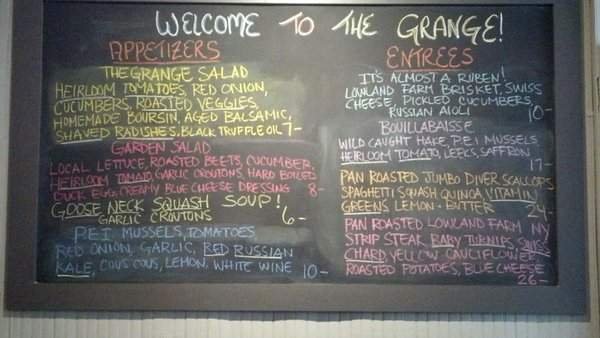 WELCOME TO THE GRANGE!
APPETIZERS
THE GRANGE SALAD
HEIRLOOM TOMATOES, RED ONION,
CUCUMBERS, ROASTED VEGGIES,
HOMEMADE BOURSIN, AGED BALSAMIC,
SHAVED RADISHES, BLACK TRUFFLE OIL 7-
GARDEN SALAD
LOCAL LETTUCE, ROASTED BEETS, CUCUMBER,
HEIRLOOM TOMATO, GARLIC CROUTONS, HARD BOILED
DUCK EGG, CREAMY BLUE CHEESE DRESSING 8-
GOOSE NECK SQUASH SOUP!
GARLIC CROUTONS 6-
P.E.I MUSSELS, TOMATOES
RED ONION, GARLIC, RED RUSSIAN
KALE, COUS COUS, LEMON, WHITE WINE 10-
ENTREES
IT'S ALMOST A RUBEN!
LOWLAND FARM BRISKET, SWISS
CHEESE, PICKLED CUCUMBERS,
RUSSIAN AIOLI 10-
BOUILLABAISSE
WILD CAUGHT HAKE, P.E.I MUSSELS
HEIRLOOM TOMATO, LEEKS, SAFFRON
17-
PAN ROASTED JUMBO DIVER SCALLOPS
SPAGHETTI SQUASH QUINOA, VITAMIN
GREENS LEMON + BUTTER 24-
PAN ROASTED LOWLAND FARM NY
STRIP STEAK BABY TURNIPS, SWISS
CHARD, YELLOW CAULIFLOWER
ROASTED POTATOES, BLUE CHEESE
26-